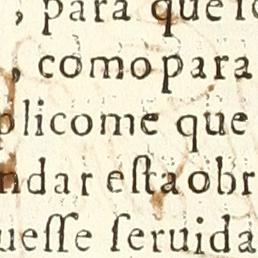 , para que lo
, como para
plicome que
ndar eſta obr
ueſſe ſeruida